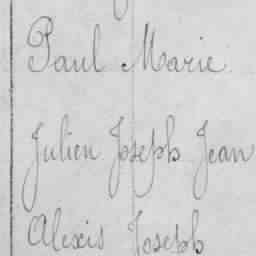 Paul Marie
Julien Joseph Jean
Alexis Joseph